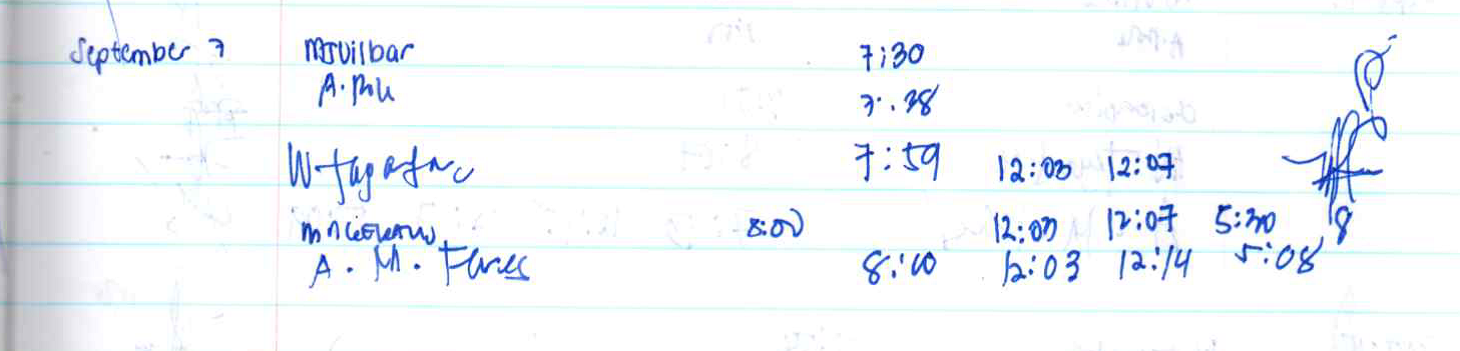 September 7 MJVilbar 7:30
A. 7:38
W 7:59 12:03 12:07
8:00 12:03 12:07 5:30
A. M. Flores 8:00 12:03 12:14 5:08